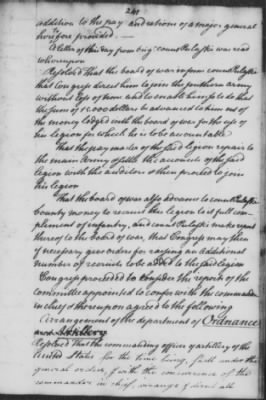 241
addition to the pay and rations of a major general
heretofore provided. —
A letter of this day from brig: count Pulaski was read
whereupon
Resolved That the board of war inform count Pulaski
that Congress direct him to join the southern army
without loss of time and to enable him so to do that
the sum of 15,000 dollars be advanced to him out of
the money lodged with the board of war for the use of
his legion for which he is to be accountable
That the pay master of the said legion repair to
the main Army & settle the accounts of the said
legion with the auditors & then proceed to join
his legion
That the board of war also advance to count Pulaski
bounty money to recruit his legion to its full com-
plement of infantry, and count Pulaski make report
thereof to the board of war, that Congress may then
if necessary give orders for raising an additional
number of recruits to be added to the said legion
Congress proceeded to consider the report of the
committee appointed to confer with the commander
in chief & thereupon agreed to the following
Arrangement of the department of Ordnance
Resolved That the commanding officer of artillery of the
United States for the time being, shall under the
general orders, & with the concurrence of the
commander in chief, arrange & direct all